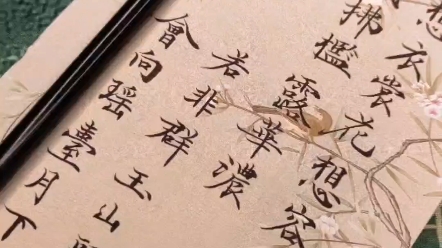 想衣裳花想容
拂檻露華濃
若非群玉山
會向瑶臺月下